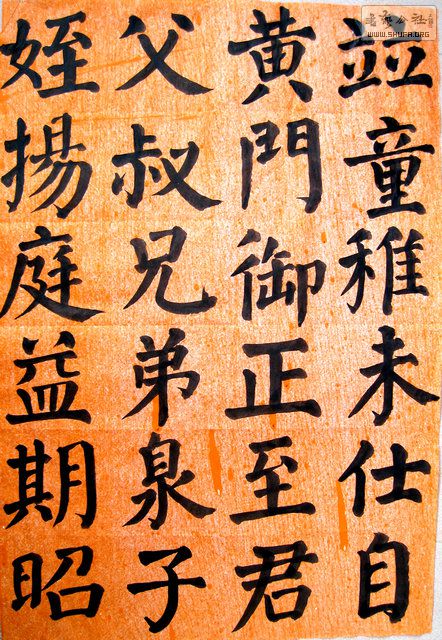 竝童稚未仕自
黄門御正至君
父叔兄弟泉子
姪揚庭益期昭
WWW.SHUFA.ORG